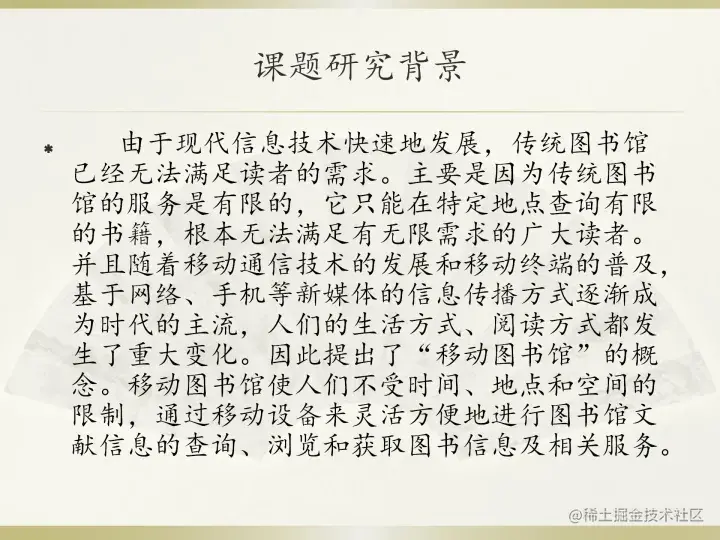 课题研究背景
由于现代信息技术快速地发展，传统图书馆
已经无法满足读者的需求。主要是因为传统图书
馆的服务是有限的，它只能在特定地点查询有限
的书籍，根本无法满足有无限需求的广大读者。
并且随着移动通信技术的发展和移动终端的普及，
基于网络、手机等新媒体的信息传播方式逐渐成
为时代的主流，人们的生活方式、阅读方式都发
生了重大变化。因此提出了“移动图书馆”的概
念。移动图书馆使人们不受时间、地点和空间的
限制，通过移动设备来灵活方便地进行图书馆文
献信息的查询、浏览和获取图书信息及相关服务。
@稀土掘金技术社区